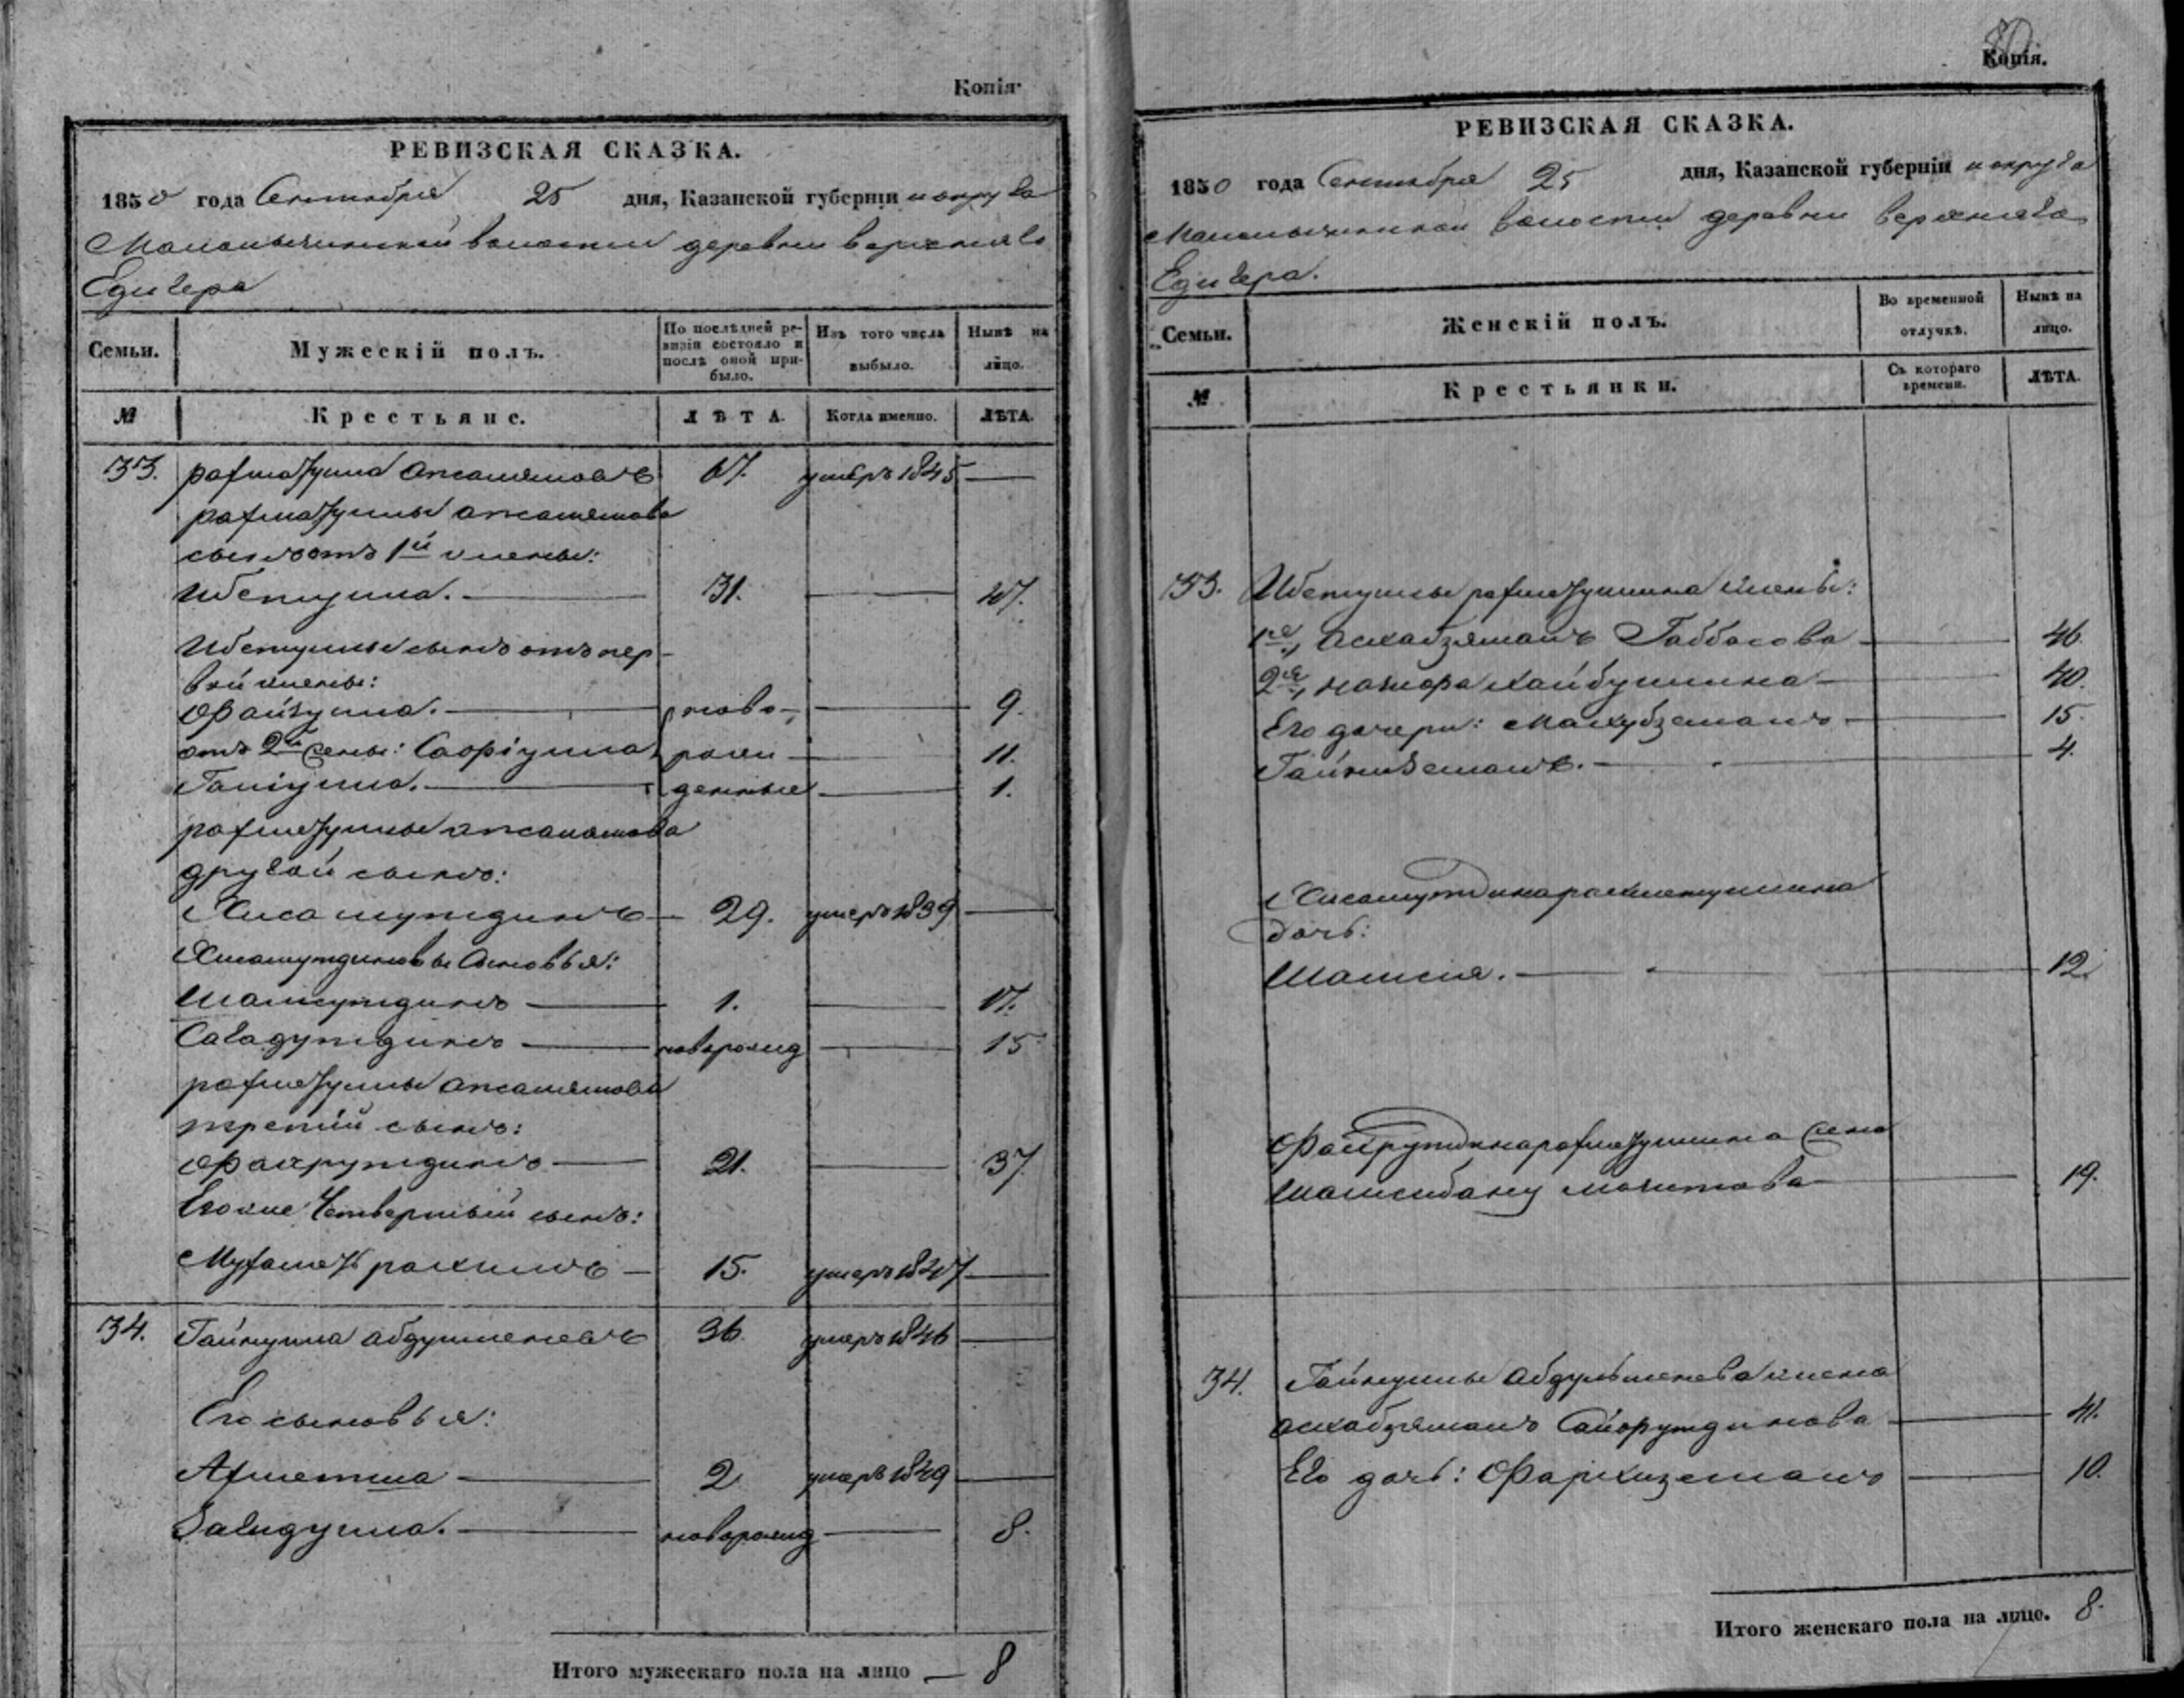 Копія.
РЕВИЗСКАЯ СКАЗКА.
1850 года Сентября 25 дня, Казанской губерніи и округа
волости деревни верхняго
Едигера
Семьи.
Мужескій полъ.
По послѣдней ре-
визіи состояло и
послѣ оной при-
было.
Изъ того числа
выбыло.
Нынѣ на
лицо.
№
Крестьяне.
ЛѢТА.
Когда именно.
ЛѢТА.
33. рахматулла 67. умеръ 1845 —
рахматуллы
сынъ отъ 1й жены:
Ибетулла. — 31. — 47.
Ибетуллы сынъ отъ пер-
вой жены:
Файзулла. — ново- — 9.
отъ 2й жены: Сафіулла рож- — 11.
Ганіулла. — денные — 1.
рахматуллы
другой сынъ:
Хисамутдинъ — 29. умеръ 1839 —
Хисамутдиновы сыновья:
Шамсутдинъ — 1. — 17.
Сагадутдинъ —новорожд — 15
рахматуллы
третій сынъ:
Фахрутдинъ — 21. — 37.
Его же Четвертый сынъ:
Мухаметрахимъ — 15. умеръ 1847 —
34. Гайнулла 36. умеръ 1846 —
Его сыновья:
Ахметша — 2. умеръ 1849 —
Загидулла. — новорожд — 8.
Итого мужескаго пола на лицо — 8
80
Копія.
РЕВИЗСКАЯ СКАЗКА.
1850 года Сентября 25 дня, Казанской губерніи и округа
волости деревни верхняго
Едигера.
Семьи.
Женскій полъ.
Во временной
отлучкѣ.
Нынѣ на
лицо.
№
Крестьянки.
Съ котораго
времени.
ЛѢТА.
33. Ибетуллы рахматуллина жены:
1я, Асхабзяманъ Габбасова — 46.
2я, Хайбуллина — 40.
Его дочери: Махубземанъ — 15.
Гайниземанъ. — 4.
Хисамутдина рахметуллина
дочь:
Шамсия. — 12.
Фахрутдина рахматуллина жена
Шамсибану — 19.
34. Гайнуллы жена
асхабзяманъ Сайфутдинова — 41.
Его дочь: Фархиземанъ — 10.
Итого женскаго пола на лицо. 8.